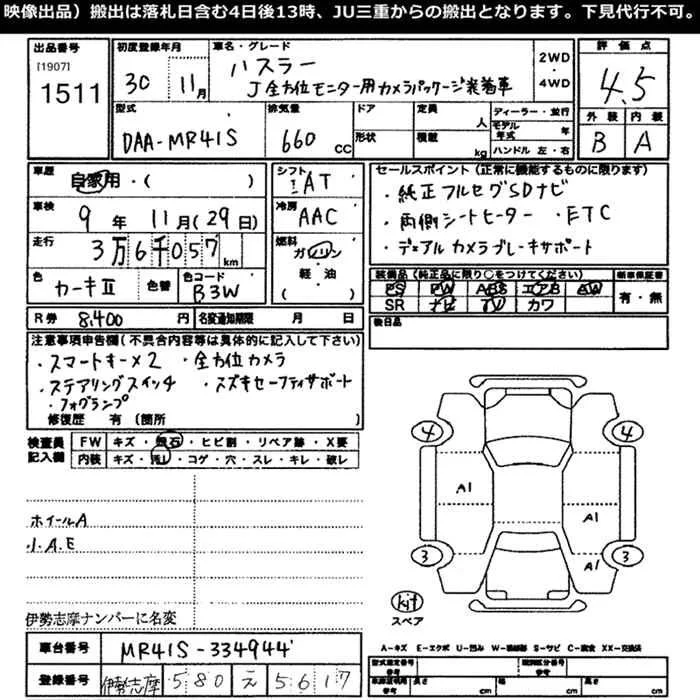 映像出品）搬出は落札日含む4日後13時、JU三重からの搬出となります。下見代行不可。
出品番号
[1907]
1511
初度登録年月
30 11月
車名・グレード
ハスラー
J 全方位モニター用カメラパッケージ装着車
2WD
・
4WD
評価点
4.5
外装 内装
B A
型式
DAA-MR41S
排気量
660 CC
ドア
形状
定員 人
積載 kg
ディーラー・並行
モデル年式 年
ハンドル 左・右
車歴
自家用・( )
車検
9年 11月(29日)
走行
3万6千057km
色
カーキⅡ
色替
色コード
B3W
シフト
AT
冷房
AAC
燃料
ガソリン
・
軽・油
( )
セールスポイント(正常に機能するものに限ります)
・純正フルセグSDナビ
・両側シートヒーター ・ETC
・デュアルカメラブレーキサポート
装備品(純正品に限り○をつけてください)
PS PW ABS エアB AW
SR ナビ TV カワ
新車保証書
有・無
R券 8,400 円
名変通知期限 月 日
後日品
注意事項申告欄(不具合内容等は具体的に記入して下さい)
・スマートキー×2 ・全方位カメラ
・ステアリングスイッチ ・スズキセーフティサポート
・フォグランプ
修復歴 有(箇所 )
検査員記入欄
FW キズ・飛石・ヒビ割・リペア跡・X要
内装 キズ・汚レ・コゲ・穴・スレ・キレ・破レ
ホイールA
小A.E
伊勢志摩ナンバーに名変
車台番号 MR41S-334944
登録番号 伊勢志摩 580 え 5617
4
4
A1
A1
3
3
A1
kit
スペア
A-キズ E-エクボ U-凹み W-補修跡 S-サビ C-腐食 XX-交換済
型式指定番号
類別区分番号
参考
車庫証明用参考
長さ cm
幅 cm
高さ cm